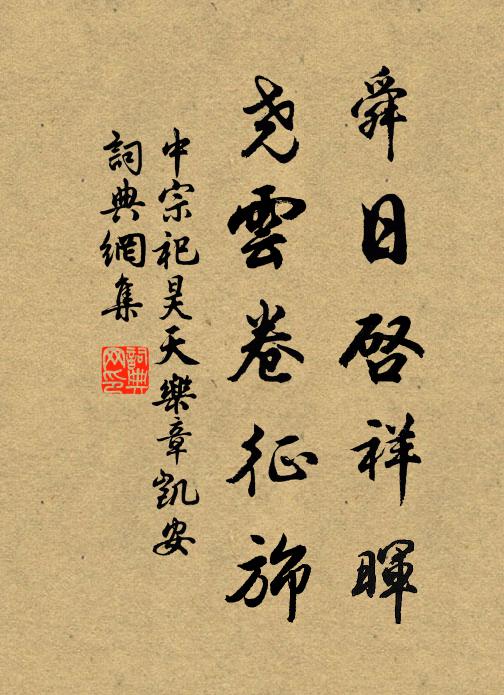 舜日啓祥暉
尧雲卷征旆
中宗祀昊天樂章凱安
詞典網集
詞典网印